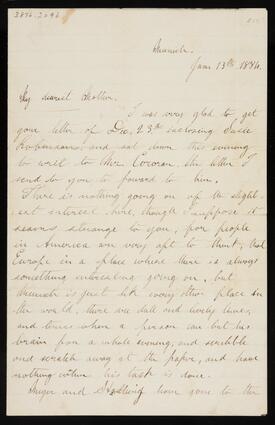 3846.2096
Munich.
Jan 13th 1884.
My dearest Mother.
I was very glad to get
your letter of Dec. 23rd inclosing Susie
Robinsons' and sat down this evening
to write to Mr. Corcoran, the letter I
send to you to forward to him.
There is nothing going on of the slight-
est interest here, though I suppose it
seems strange to you, for people
in America are very apt to think, that
Europe is a place where there is always
something interesting going on, but
Munich is just like every other place in
the world, there are dull and lively times,
and times when a person can rest his
brain for a whole evening, and scribble
and scratch away at the paper, and have
nothing when his task is done.
and have gone to the